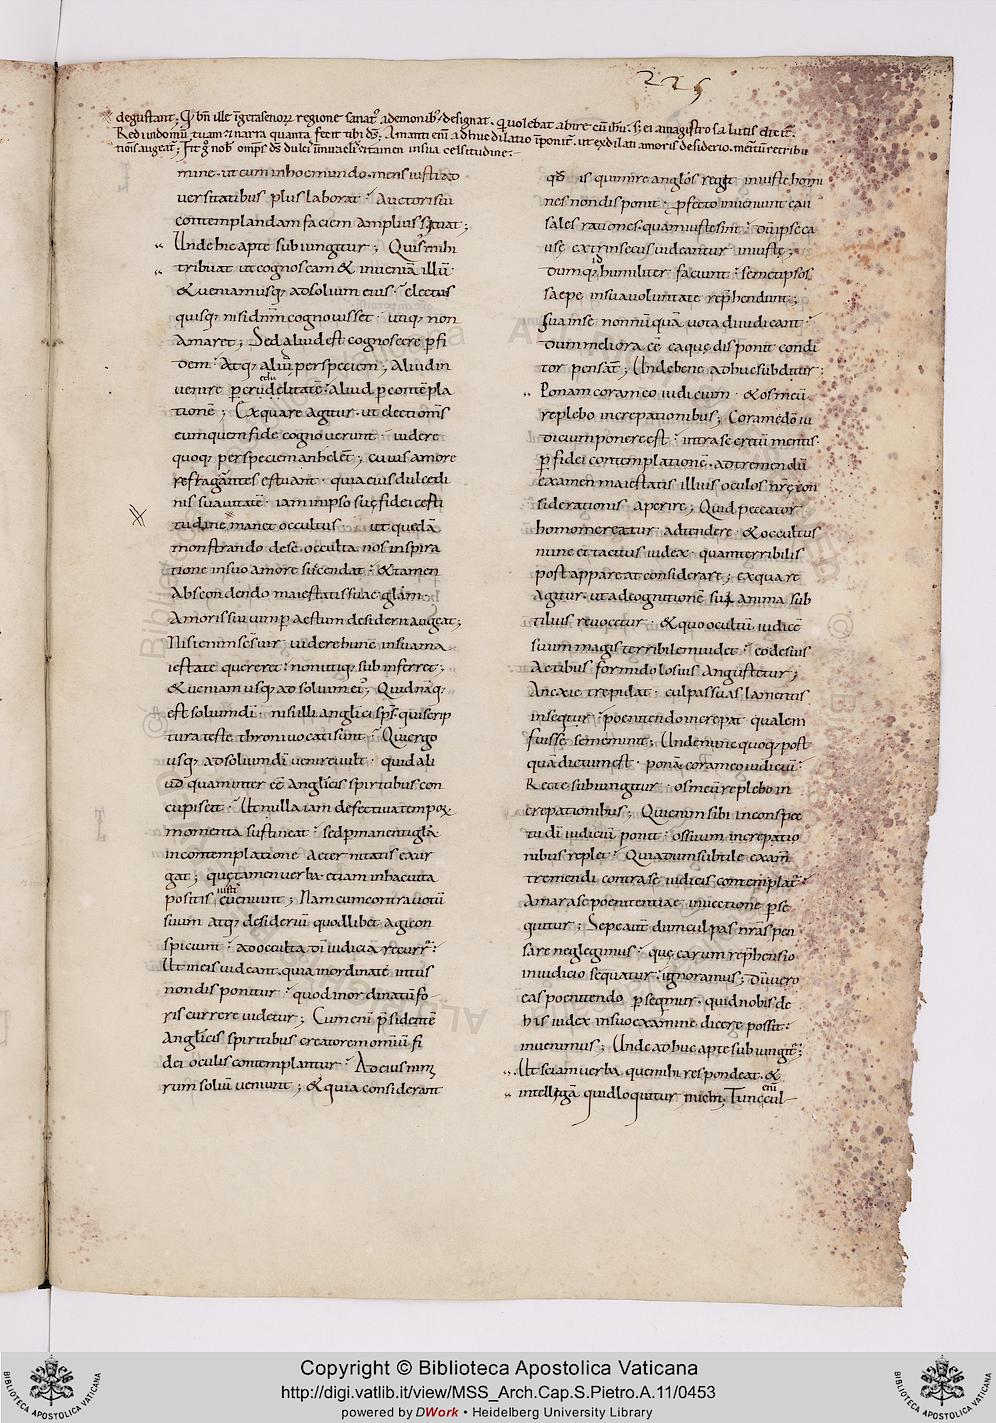 225
degustant; Q bñ ille ĩ gerasenoꝝ regione sanat᷒ ademonib᷒ designat. q volebat abire cũ ihũ. s; ei amagistro salutis dicit̃.
Redi indomũ tuam & narra quanta fecit tibi dс̃; Amanti eni̅ adhuc dilatio ĩponit̃. ut exdilati amoris desiderio. meritũ retribu
tionis augeat̃; Fit g̊ nob omps ds dulcis in miraclis. & tamen insua celsitudine.
mine. ut cum inhocmundo. mens iusti ad
versitatibus plus laborat. Auctoris sui
contemplandam faciem amplius sitiat;
Unde hic apte subiungitur; Quis mihi
tribuat ut cognoscam & inveniã illũ.
& veniam usq; ad solium eius. electus
quisq; nisi dñm cognovisset. utiq; non
amaret; Sed aliud est cognoscere p fi
dem. Atq; aliud per speciem; Aliud in
venire p credulitatẽ. aliud p contẽpla
tionẽ; Exquare agitur. ut electi om̃s
eum quem fide cognoverunt. videre
quoq; per speciem anhelent; cuius amore
flagrantes estuant. quia eius dulcedi
nis suavitatẽ. iam in ipso suę fidei certi
tudine manet occultus. ut quedã
monstrando dese. occulta nos inspira
tione insuo amore succendat. & tamen
Abscondendo maiestatis suae glam.
Amoris sui vim p aestum desiderii augeat;
Nisi enim scs vir. videre hunc insua ma
iestate quereret. non utiq; subinferret;
& veniam usq; ad solium ei᷒; Quid náq;
est solium di. nisi illi anglici sps. qui scrip
tura teste throni vocati sunt. Qui ergo
usq; ad solium di venire vult. quid ali
ud quam inter eẽ anglicis spiritibus con
cupiscit. Ut nulla iam defectiva tempoꝝ.
momenta sustineat. sed p manenti glã
in contemplatione aeternitatis exur
gat; quę tamen verba. etiam inhac vita
positis iusti eveniunt; Nam cum contra votũ
suum atq; desideriũ quodlibet agi con
spiciunt. ad occulta di iudicia recurr̃.
Ut in eis videant. quia inordinatẽ intus
non disponitur. quod inordinatũ fo
ris currere videtur; Cum eni p̃sidentẽ
Anglicis spiritibus creatorem omiũ fi
dei oculis contemplantur. Ad eius nim
rum soliũ veniunt; & quia considerant
qđ is qui mire anglos regit. iniuste homi
nes non disponit. pfecto inveniunt cau
sales rationes. quam iuste sint. ouipse ca
usę extrinsecus videantur iniustę;
Dumq; id humiliter faciunt. semetipsos
saepe insua voluntate rephendunt;
Sua inse nonnũ quã vota diiudicant.
Dum meliora eẽ ea quę disponit condi
tor pensãt; Unde bene adhuc subditur;
Ponam coram eo iudicium. & os meũ
replebo increpationibus; Coram deo iu
dicium ponere est. intra secretũ mentis.
p fidei contemplationẽ. ad tremendũ
examen maiestatis illius oculos nrę con
siderationis aperire; Quid peccator
homo mereatur adtendere. & occultus
nunc et tacitus iudex. quam terribilis
post appareat considerare; exquare
Agitur. ut ad cognitionẽ sui anima sub
tilius revocetur. & quo ocultũ iudicẽ
suum magis terribilem videt. eo de suis
Actibus formidolosius Angustetur;
Anxie trepidat. culpas suas lamentis
insequitur. poenitendo increpat qualem
fuisse se meminit; Unde nunc quoq; post
quã dictum est. ponã coram eo iudiciũ.
Recte subiungitur. os meũ replebo in
crepationibus; Qui enim sibi in conspec
tu di iudiciũ ponit. os suum increpatio
nibus replet. Quia dum subtile examẽ
tremendi contra se iudicis contemplat᷒.
Amarase poenitentiae invectione pse
quitur; Sepe autẽ dum culpas nr̃as pen
sare neglegimus. quę earum rephensio
in iudicio sequatur. ignoramus; dũ vero
eas poenitendo psequimur. quid nobis de
his iudex in suo examine dicere possit.
invenimus; Unde adhuc apte subiungit̃;
Ut sciam verba. quę mihi respondeat. &
intellegã quid loquitur michi. Tunc enĩ cul
Copyright © Biblioteca Apostolica Vaticana
http://digi.vatlib.it/view/MSS_Arch.Cap.S.Pietro.A.11/0453
powered by DWork • Heidelberg University Library
BIBLIOTECA APOSTOLICA VATICANA
BIBLIOTECA APOSTOLICA VATICANA